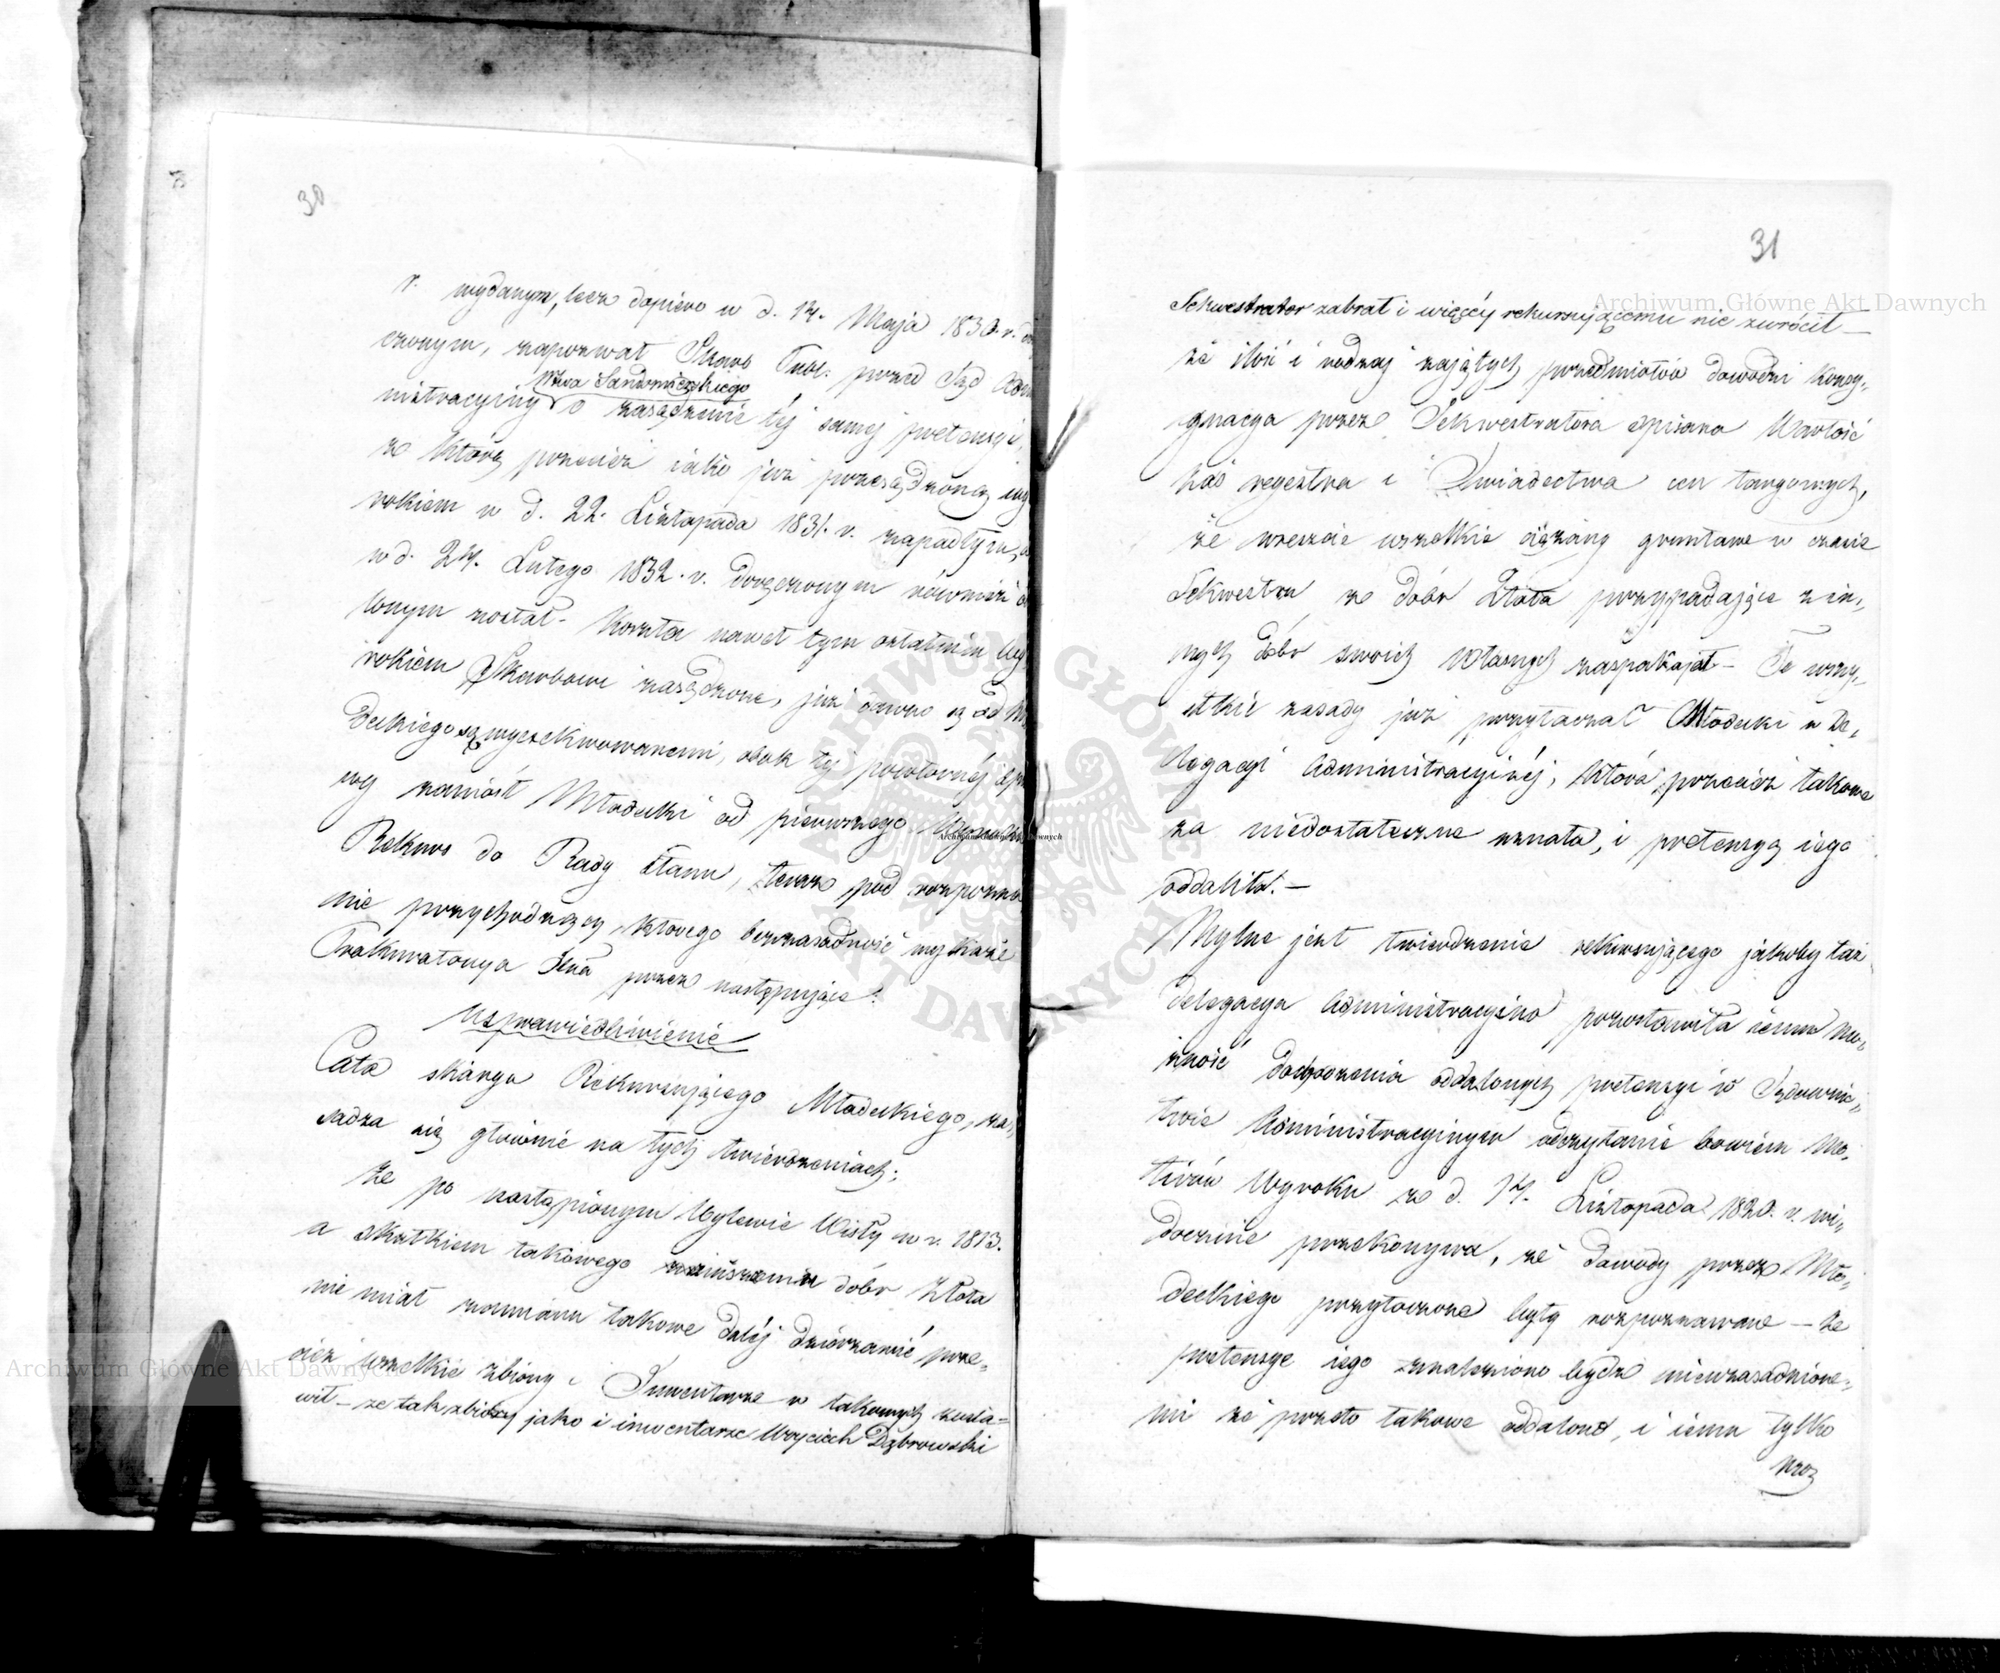 30
r. wydanym, lecz dopiero w d. 14. Maja 1830. r.
czonym, zapozwał Skarb Publ: przed Sąd Adm
Wztwa Sandomirskiego
nistracyiny o zasądzenie téj saméj pretensyi,
z którą przecież jako już przesądzoną wy
rokiem w d. 22. Listopada 1831. r. zapadłym, a
w d. 24. Lutego 1832. r. doręczonym również od
lonym został. Koszta nawet tym ostatnim Wy
rokiem Skarbowi zasądzone, już dawno są od Mło
deckiego są wyexekwowanemi, obok téj powtórnéj spra
wy zaniósł Młodecki od pierwszego Wyroku
Rekurs do Rady Stanu, teraz pod rozpozna
nie przychodzący, którego bezzasadność wykaże
Prokuratorya Jlna przez następujące:
Usprawiedliwienie
Cała skarga Rekurującego Młodeckiego, za,
sadza się głównie na tych twierdzeniach;
że po nastąpionym Wylewie Wisły w r. 1813.
a skutkiem takowego zniszczenia dóbr Złota
nie miał zamiaru takowe daléj dzierżawić prze,
cież wszelkie zbiory i Inwentarze w takowych zosta=
wił – że tak zbiory jako i inwentarze Woyciech Dąbrowski
31
Sekwestrator zabrał i więcéy rekursuiącemu nie zwrócił –
że ilość i rodzaj zajętych przedmiotów dowodzi Konsy,
gnacya przez Sekwestratora spisana Wartość
zaś regestra i Swiadectwa cen targowych,
że wreszcie wszelkie ciężary gruntowe w czasie
Sekwestru z dóbr Złota przypadające z in,
nych dóbr swoich Własnych zaspakajał – Te wszy,
stkie zasady już przytaczał Młodecki w De,
legacyi Administracyinéj, która przecież takowe
za niedostateczne uznała, i pretensyą iego
oddaliła. –
Mylne jest twierdzenie rekursującego jakoby taż
Delegacya Administracyina pozostawiła iemu mo,
żność dochodzenia oddalonych pretensyi w Sądownic,
twie Administracyinym odczytanie bowiem Mo,
tivów Wyroku z d. 14. Listopada 1820. r. wi,
docznie przekonywa, że dowody przez Mło,
deckiego przytoczone były rozpoznawane – że
pretensye iego znalezione były niezasadnione,
mi że przeto takowe oddalono, i iemu tylko